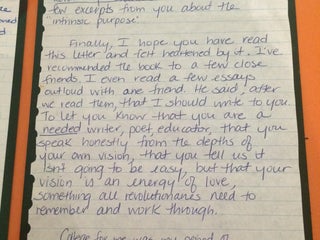 few excerpts from you about the
"intrinsic purpose".
Finally, I hope you have read
this letter and felt heartened by it. I've
recommended the book to a few close
friends. I even read a few essays
outloud with one friend. He said, after
we read them, that I should write to you.
To let you know that you are a
needed writer, poet, educator, that you
speak honestly from the depths of
your own vision, that you tell us it
isn't going to be easy, but that your
vision is an energy of love,
something all revolutionaries need to
remember and work through.
College for me was my period of